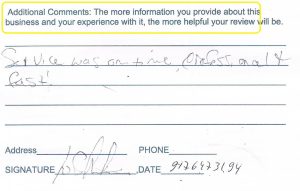 Additional Comments: The more information you provide about this
business and your experience with it, the more helpful your review will be.
Service was on time, Professional &
fast!
Address PHONE
SIGNATURE DATE